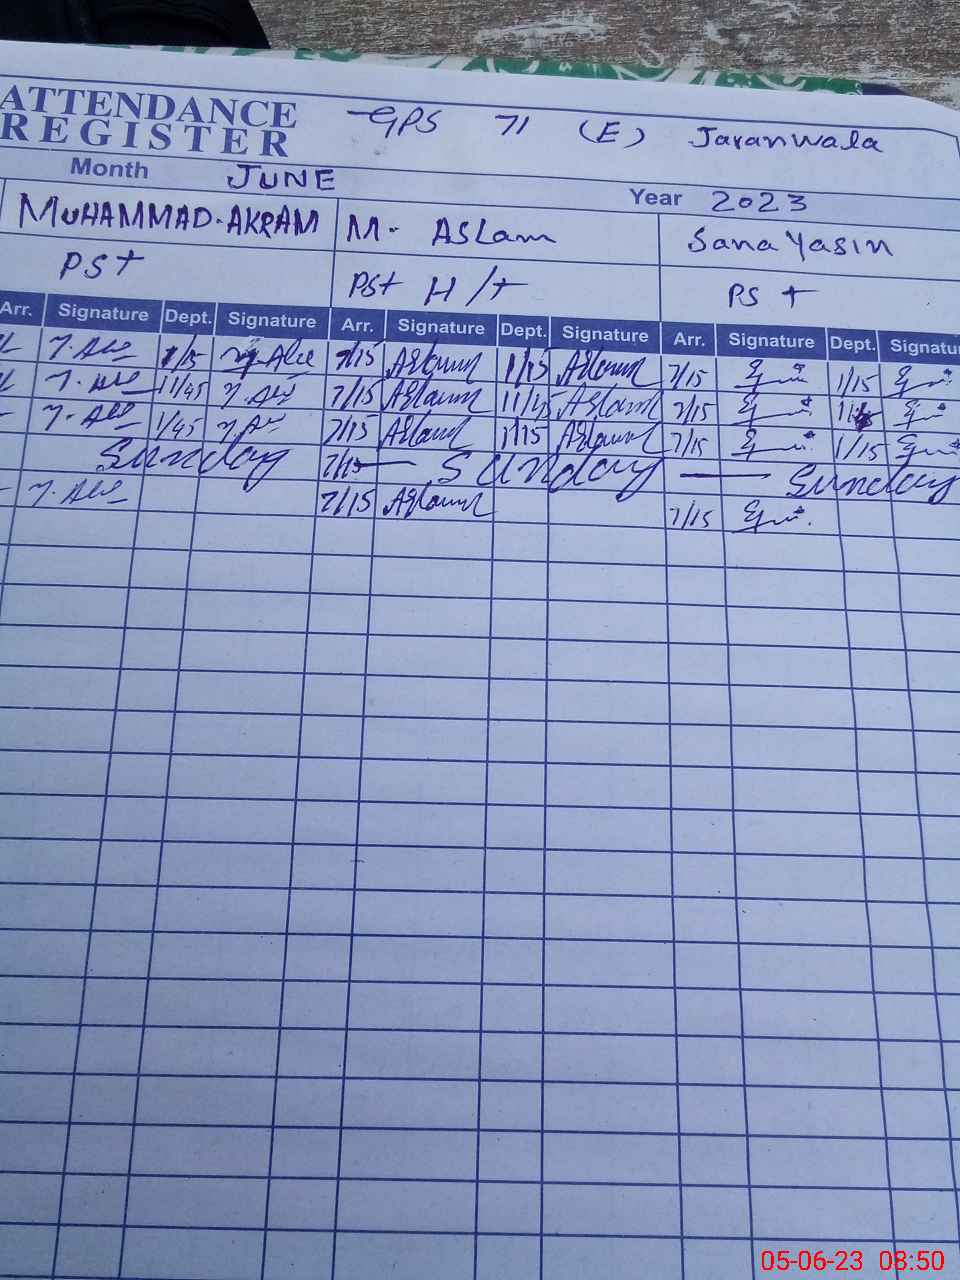 ATTENDANCE REGISTER GPS 71 (E) Jaranwala
Month JUNE Year 2023
MUHAMMAD. AKRAM M. ASLam Sana Yasin
PST PST H/T PST
Arr. Signature Dept. Signature Arr. Signature Dept. Signature Arr. Signature Dept. Signatu
1/15 7/15 Aslam 1/15 Aslam 7/15 1/15
11/45 7/15 Aslam 11/45 Aslam 7/15
1/45 7/15 Aslam 1/15 Aslam 7/15 1/15
Sunday 7/15 — Sunday — Sunday
7/15 Aslam 7/15
05-06-23 08:50